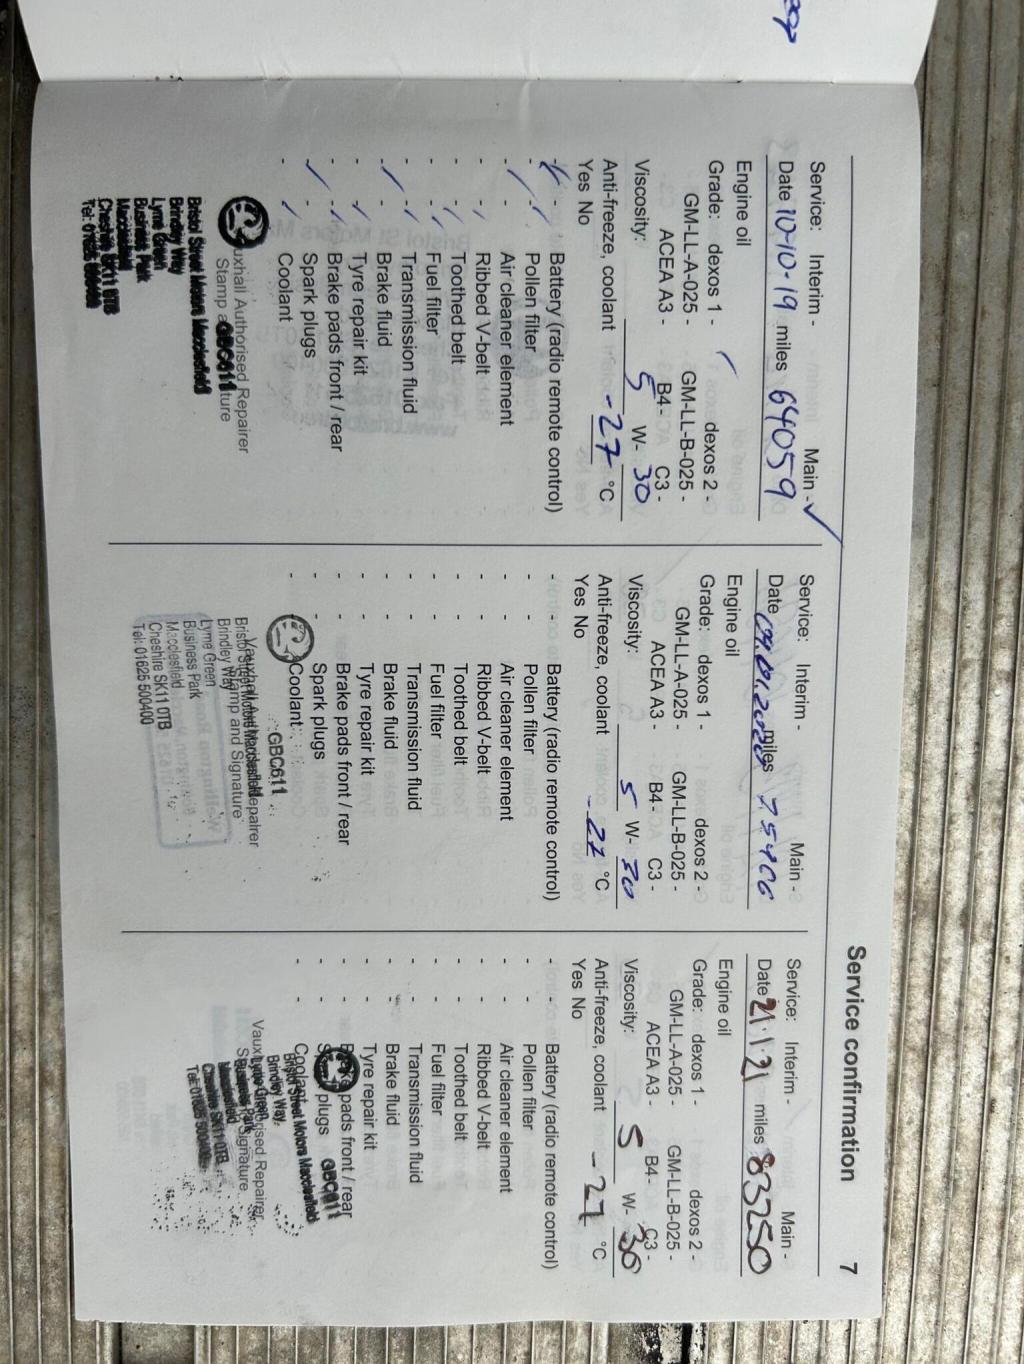 Service confirmation 7
Service: Interim - Main - ✓
Date 10-10-19 miles 64059
Engine oil
Grade: dexos 1 - ✓ dexos 2 -
GM-LL-A-025 - GM-LL-B-025 -
ACEA A3 - B4 - C3 -
Viscosity: 5 W- 30
Anti-freeze, coolant -27 °C
Yes No
- - Battery (radio remote control)
- - Pollen filter
- - Air cleaner element
- - Ribbed V-belt
- - Toothed belt
- - Fuel filter
- - Transmission fluid
- - Brake fluid
- - Tyre repair kit
- - Brake pads front / rear
- - Spark plugs
- - Coolant
Vauxhall Authorised Repairer
Stamp and Signature
GBC611
Bristol Street Motors Macclesfield
Brindley Way
Lyme Green
Business Park
Macclesfield
Cheshire SK11 0TB
Tel: 01625 500400
Service: Interim - Main -
Date 09.01.2020 miles 75406
Engine oil
Grade: dexos 1 - dexos 2 -
GM-LL-A-025 - GM-LL-B-025 -
ACEA A3 - B4 - C3 -
Viscosity: 5 W- 30
Anti-freeze, coolant -27 °C
Yes No
- - Battery (radio remote control)
- - Pollen filter
- - Air cleaner element
- - Ribbed V-belt
- - Toothed belt
- - Fuel filter
- - Transmission fluid
- - Brake fluid
- - Tyre repair kit
- - Brake pads front / rear
- - Spark plugs
- - Coolant
GBC611
Vauxhall Authorised Repairer
Stamp and Signature
Bristol Street Motors Macclesfield
Brindley Way
Lyme Green
Business Park
Macclesfield
Cheshire SK11 0TB
Tel: 01625 500400
Service: Interim - Main -
Date 21.1.21 miles 83250
Engine oil
Grade: dexos 1 - dexos 2 -
GM-LL-A-025 - GM-LL-B-025 -
ACEA A3 - B4 - C3 -
Viscosity: 5 W- 30
Anti-freeze, coolant -27 °C
Yes No
- - Battery (radio remote control)
- - Pollen filter
- - Air cleaner element
- - Ribbed V-belt
- - Toothed belt
- - Fuel filter
- - Transmission fluid
- - Brake fluid
- - Tyre repair kit
- - Brake pads front / rear
- - Spark plugs
- - Coolant
GBC611
Vauxhall Authorised Repairer
Stamp and Signature
Bristol Street Motors Macclesfield
Brindley Way
Lyme Green
Business Park
Macclesfield
Cheshire SK11 0TB
Tel: 01625 500400